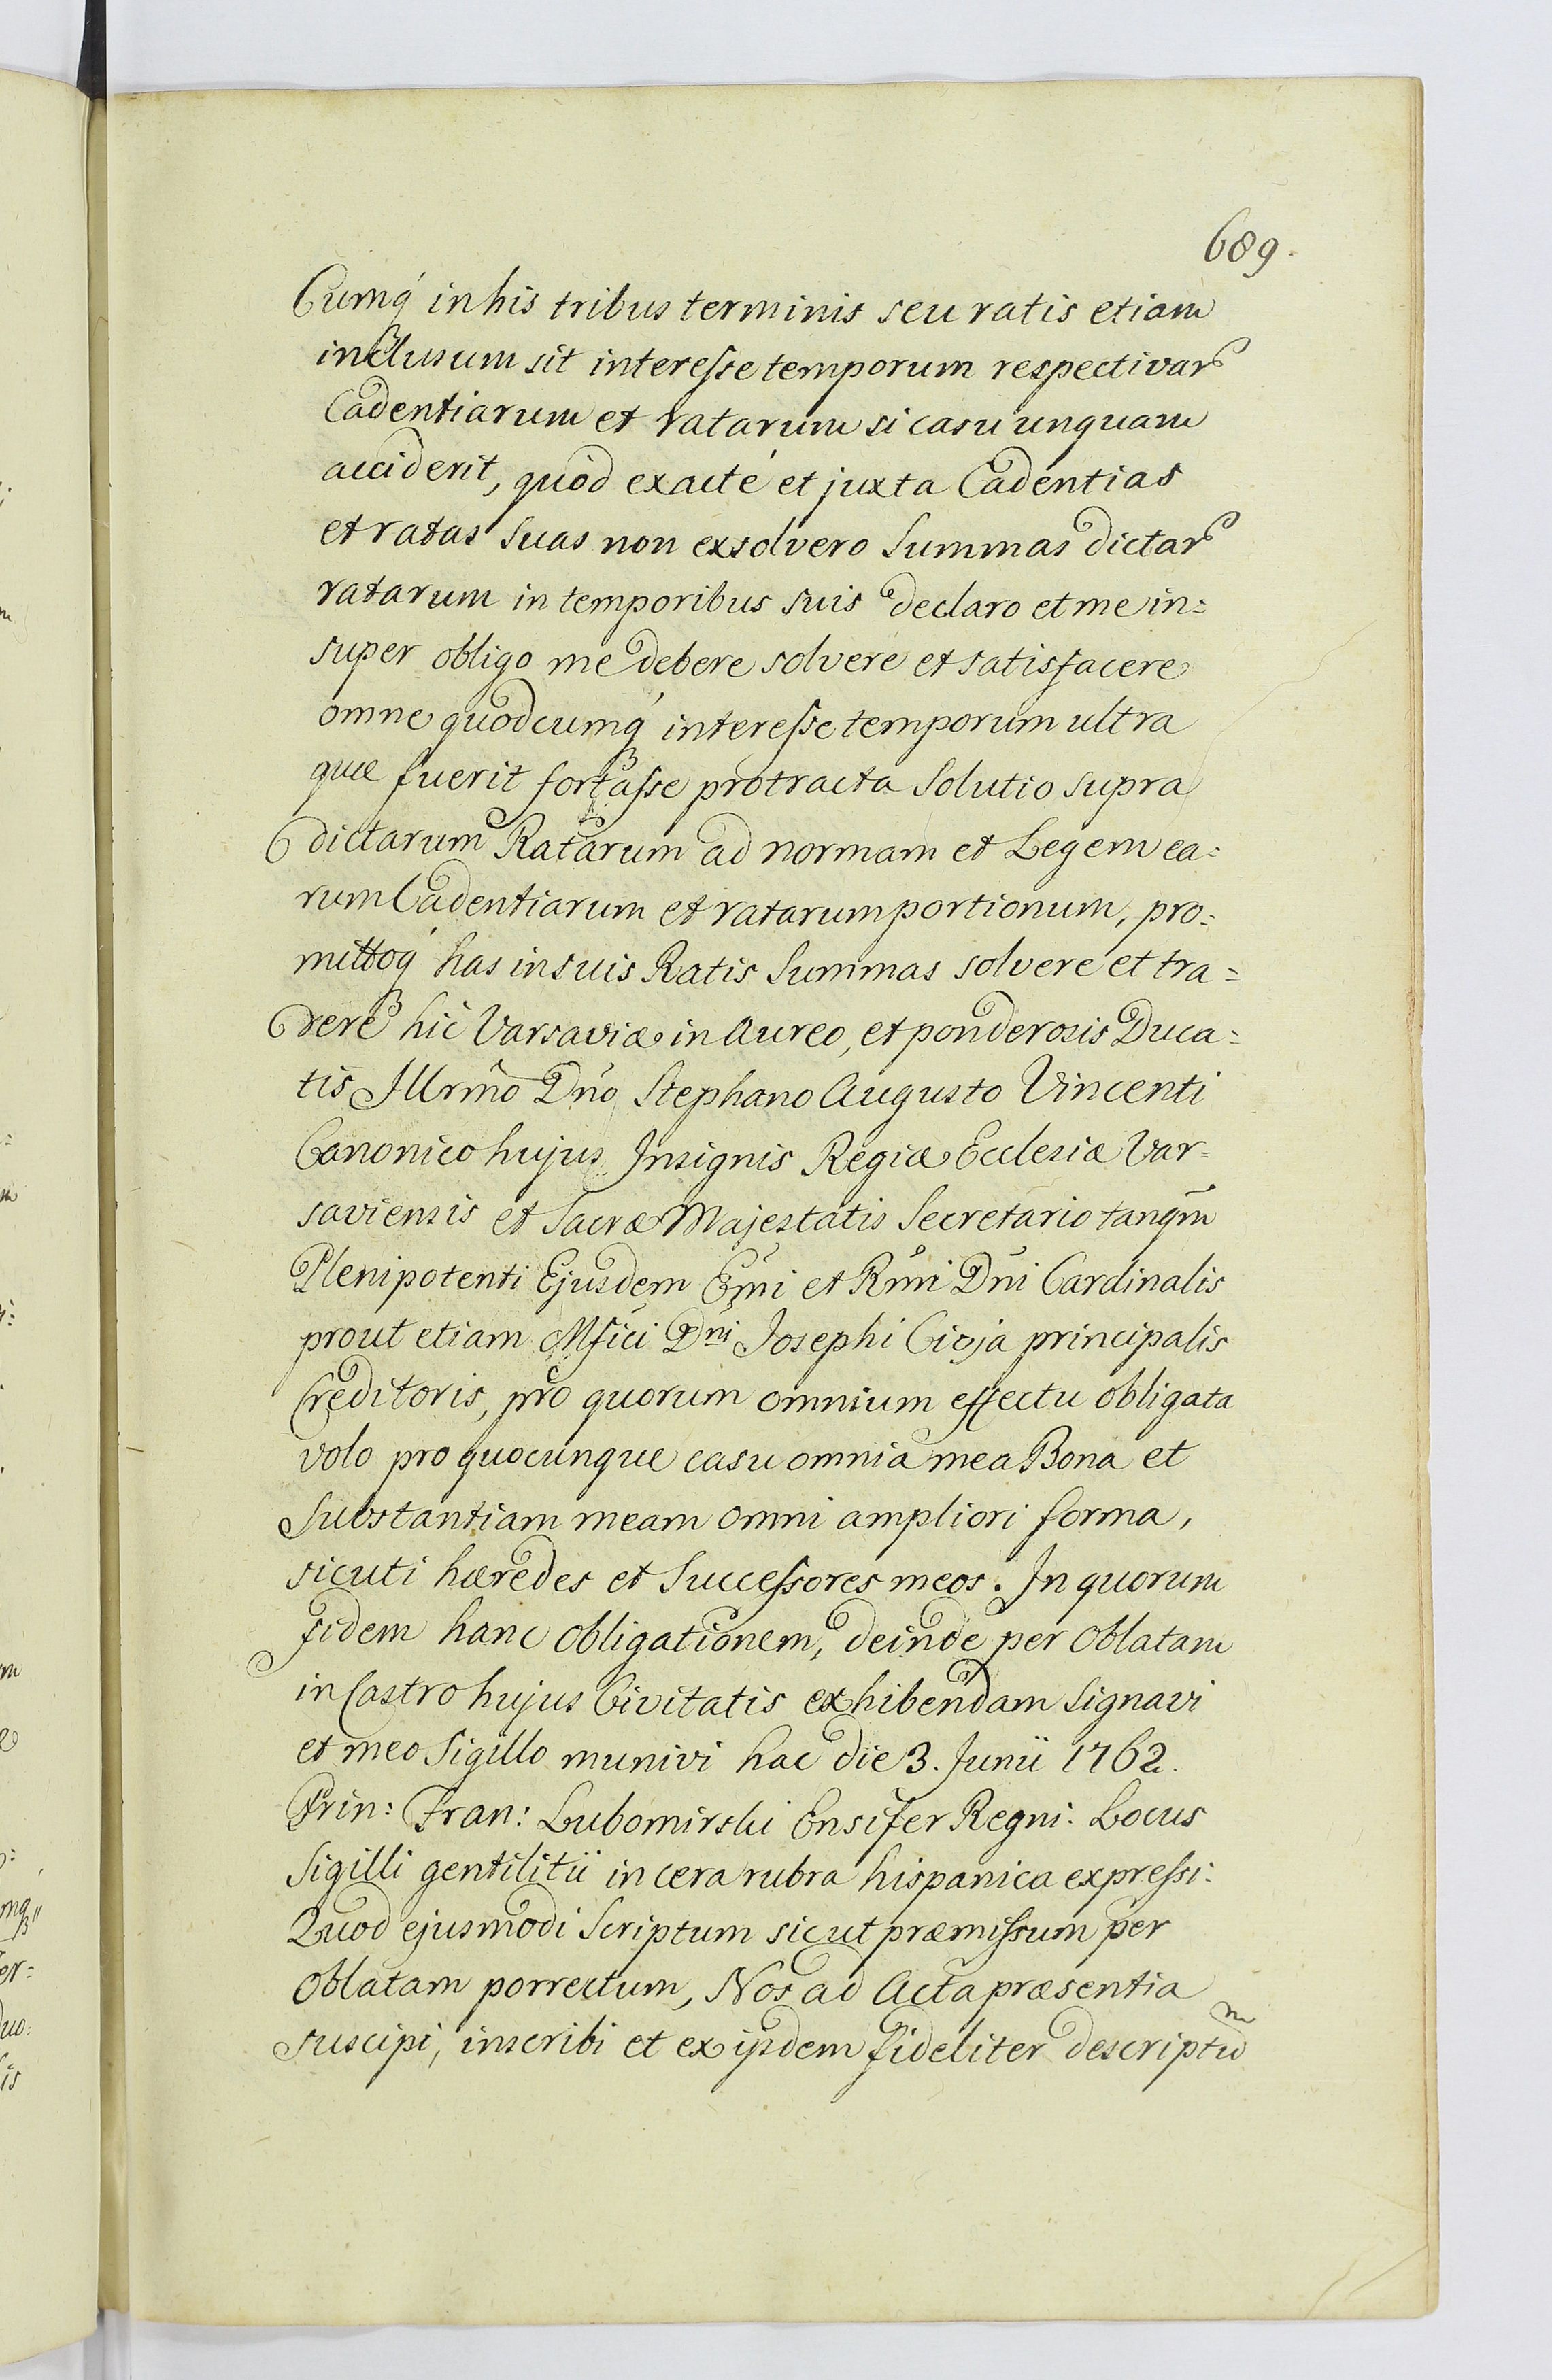 689.
Cumq́ in his tribus terminis seu ratis etiam
inclusum sit interesse temporum respectivar
Cadentiarum et ratarum si casu unquam
acciderit, quòd exactè et juxta Cadentias
et ratas suas non exsolvero Summas dictar
ratarum in temporibus suis declaro et me in=
super obligo me debere solvere et satisfacere
omne quodcumq́ interesse temporum ultra
quæ fuerit fortasse protracta Solutio supra
dictarum Ratarum ad normam et Legem ea=
rum Cadentiarum et ratarum portionum, pro=
mittoq́ has in suis Ratis Summas solvere et tra=
dere hic Varsaviæ in Aureo, et ponderosis Duca=
tis Illrm̃o Dño Stephano Augusto Vincenti
Canonico hujus Insignis Regiæ Ecclesiæ Var=
saviensis et Sacræ Majestatis Secretario tanqm̃
Plenipotenti Ejusdem Em̃i et Rm̃i Dñi Cardinalis
prout etiam Mfici Dni Josephi Cioja principalis
Creditoris, pro quorum omnium effectu obligata
volo pro quocunque casu omnia mea Bona et
Substantiam meam omni ampliori forma,
sicuti hæredes et Successores meos. In quorum
fidem hanc obligationem, deinde per Oblatam
in Castro hujus Civitatis exhibendam signavi
et meo Sigillo munivi hac die 3. Junii 1762.
Prin: Fran: Lubomirski Ensifer Regni. Locus
Sigilli gentilitii in cera rubra hispanica expressi.
Quod ejusmodi Scriptum sicut præmissum per
Oblatam porrectum, Nos ad Acta præsentia
suscipi, inscribi et ex ijsdem fideliter descriptum